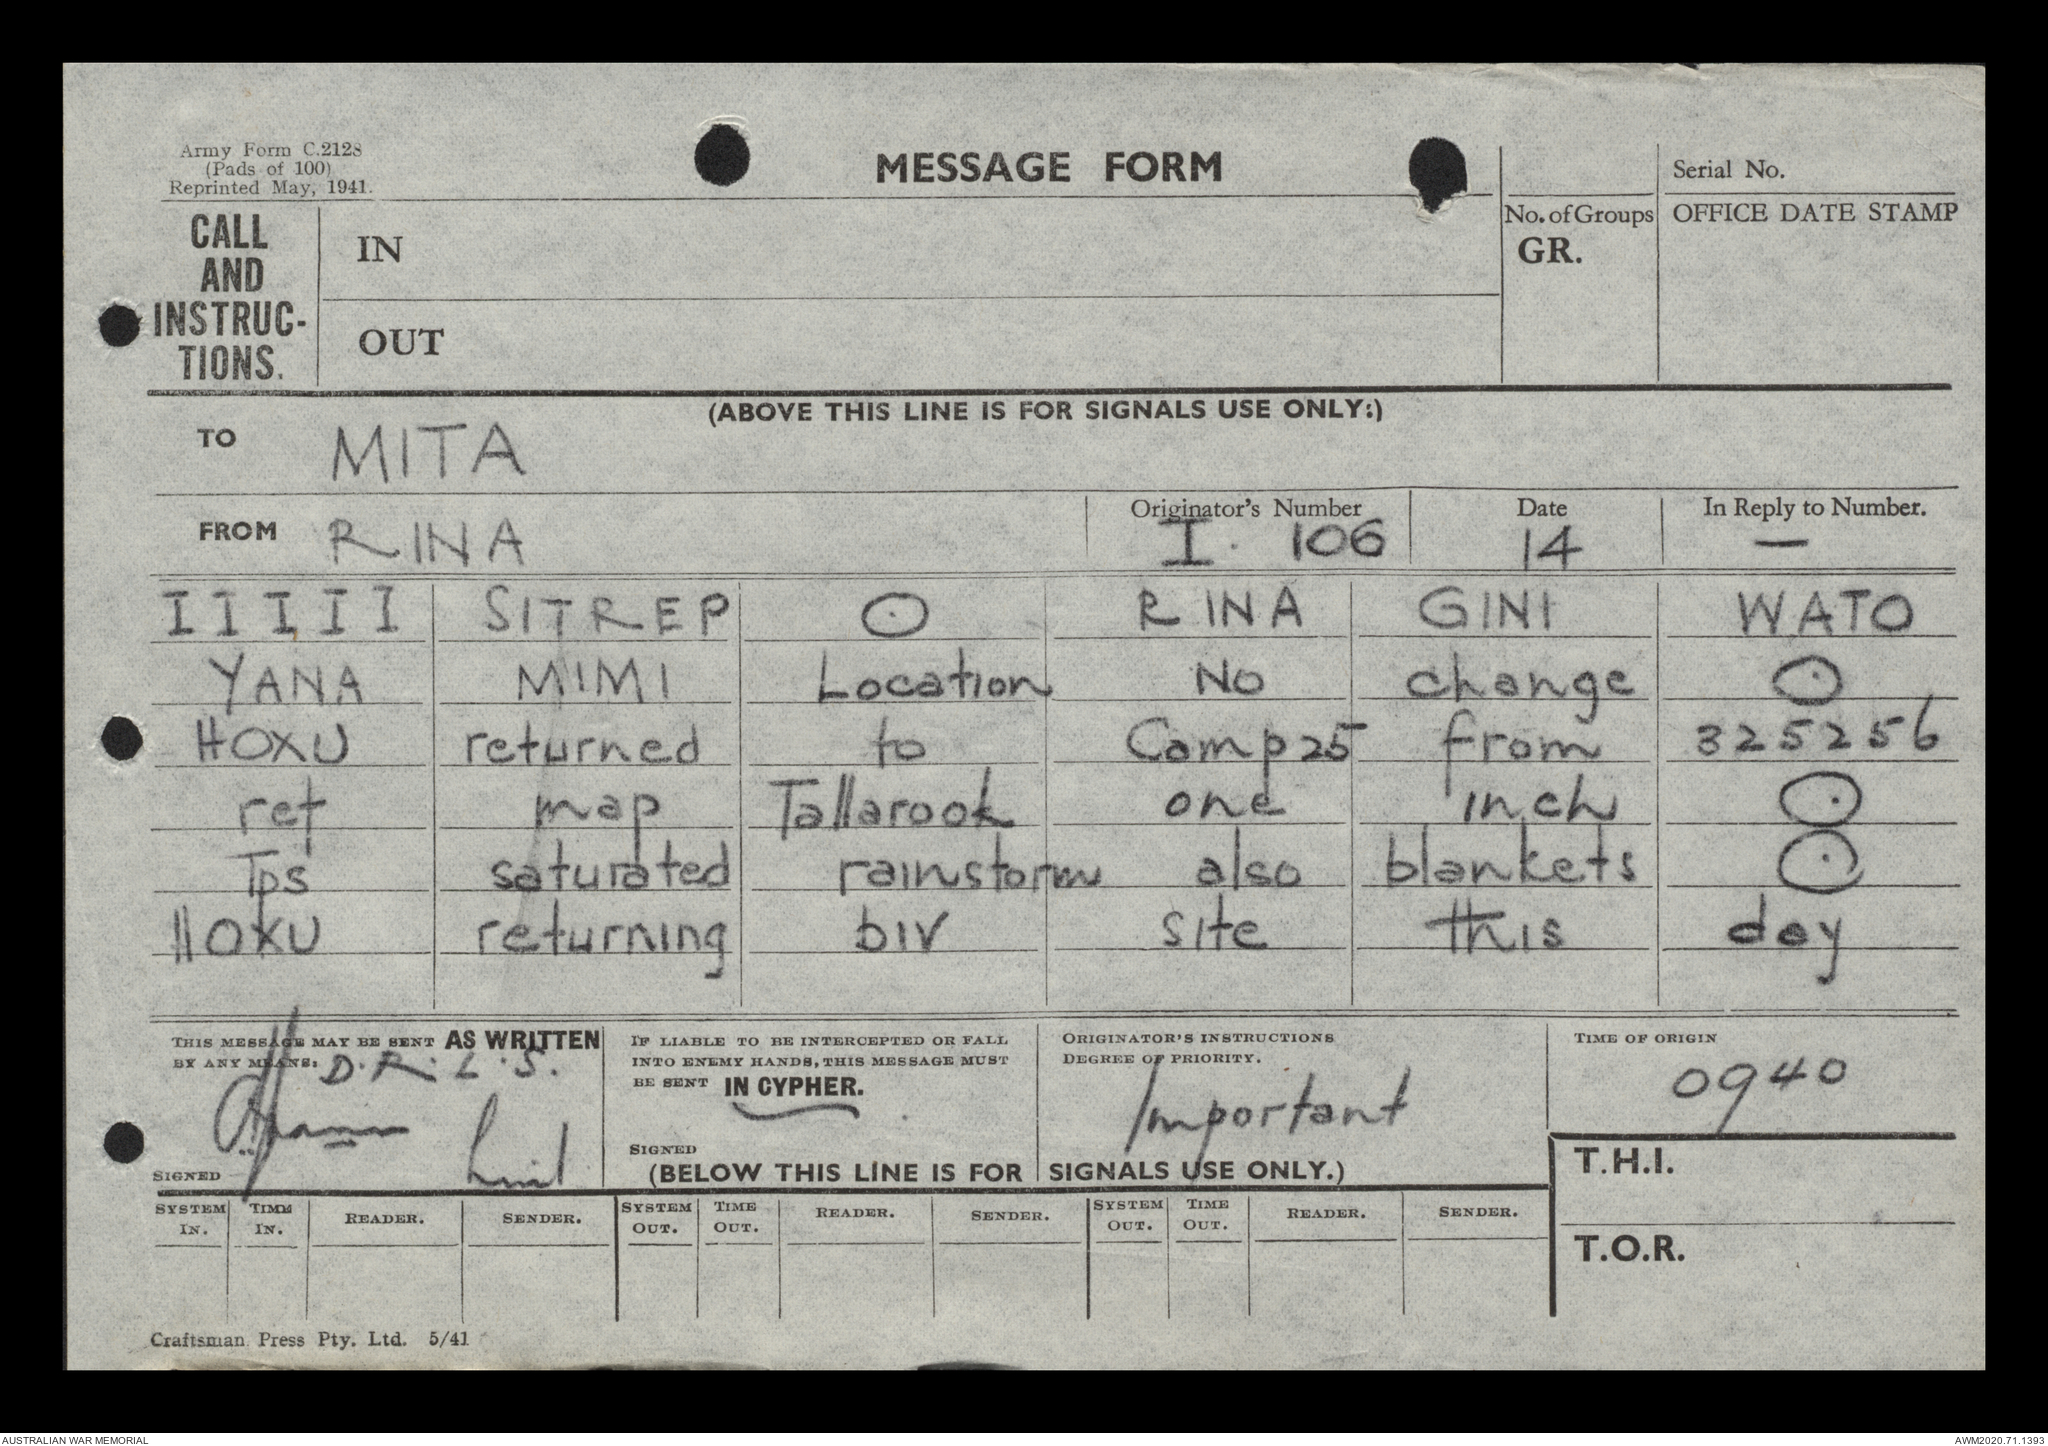 Army Form C.2128
(Pads of 100)
Reprinted May, 1941.
MESSAGE FORM
Serial No.
CALL AND INSTRUC-TIONS.
IN
OUT
No. of Groups
GR.
OFFICE DATE STAMP
(ABOVE THIS LINE IS FOR SIGNALS USE ONLY:)
TO MITA
FROM RINA
Originator's Number I. 106
Date 14
In Reply to Number. —
I I I I I SITREP ⊙ RINA GINI WATO
YANA MIMI Location No change ⊙
HOXU returned to Camp 25 from 325256
ref map Tallarook one inch ⊙
Tps saturated rainstorm also blankets ⊙
HOXU returning biv site this day
THIS MESSAGE MAY BE SENT AS WRITTEN
BY ANY MEANS: D.R. L.S.
SIGNED
IF LIABLE TO BE INTERCEPTED OR FALL
INTO ENEMY HANDS, THIS MESSAGE MUST
BE SENT IN CYPHER.
SIGNED
ORIGINATOR'S INSTRUCTIONS
DEGREE OF PRIORITY.
Important
TIME OF ORIGIN
0940
(BELOW THIS LINE IS FOR SIGNALS USE ONLY.)
T.H.I.
T.O.R.
SYSTEM IN. TIME IN. READER. SENDER. SYSTEM OUT. TIME OUT. READER. SENDER. SYSTEM OUT. TIME OUT. READER. SENDER.
Craftsman Press Pty. Ltd. 5/41
AUSTRALIAN WAR MEMORIAL
AWM2020.71.1393